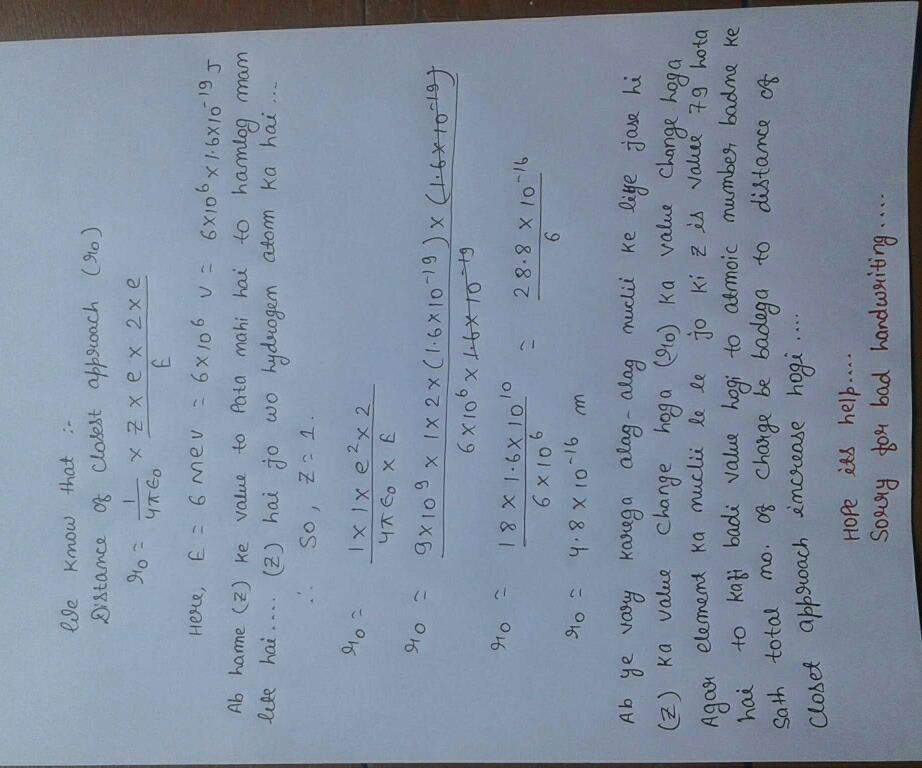 We know that :-
Distance of closest approach (r₀)
r₀ = 1/4πε₀ × z × e × 2 × e / E
Here, E = 6 MeV = 6×10⁶ V = 6×10⁶×1.6×10⁻¹⁹ J
Ab hame (z) ke value to Pata nahi hai to hamlog man
lete hai.... (z) hai jo wo hydrogen atom ka hai ...
∴ So, z = 1.
r₀ = 1×1×e²×2 / 4πε₀ × E
r₀ = 9×10⁹×1×2×(1.6×10⁻¹⁹)×(1.6×10⁻¹⁹) / 6×10⁶×1.6×10⁻¹⁹
r₀ = 18×1.6×10¹⁰ / 6×10⁶ = 28.8×10⁻¹⁶ / 6
r₀ = 4.8×10⁻¹⁶ m
Ab ye vary karega alag-alag nuclii ke liye jase hi
(z) ka value change hoga (r₀) ka value change hoga
Agar element ka nuclii le le jo ki z is value 79 hota
hai to kafi badi value hogi to atmoic number badne ke
Sath total no. of charge be badega to distance of
Closet approach increase hogi....
HOPE its help.....
Sorry for bad handwriting....